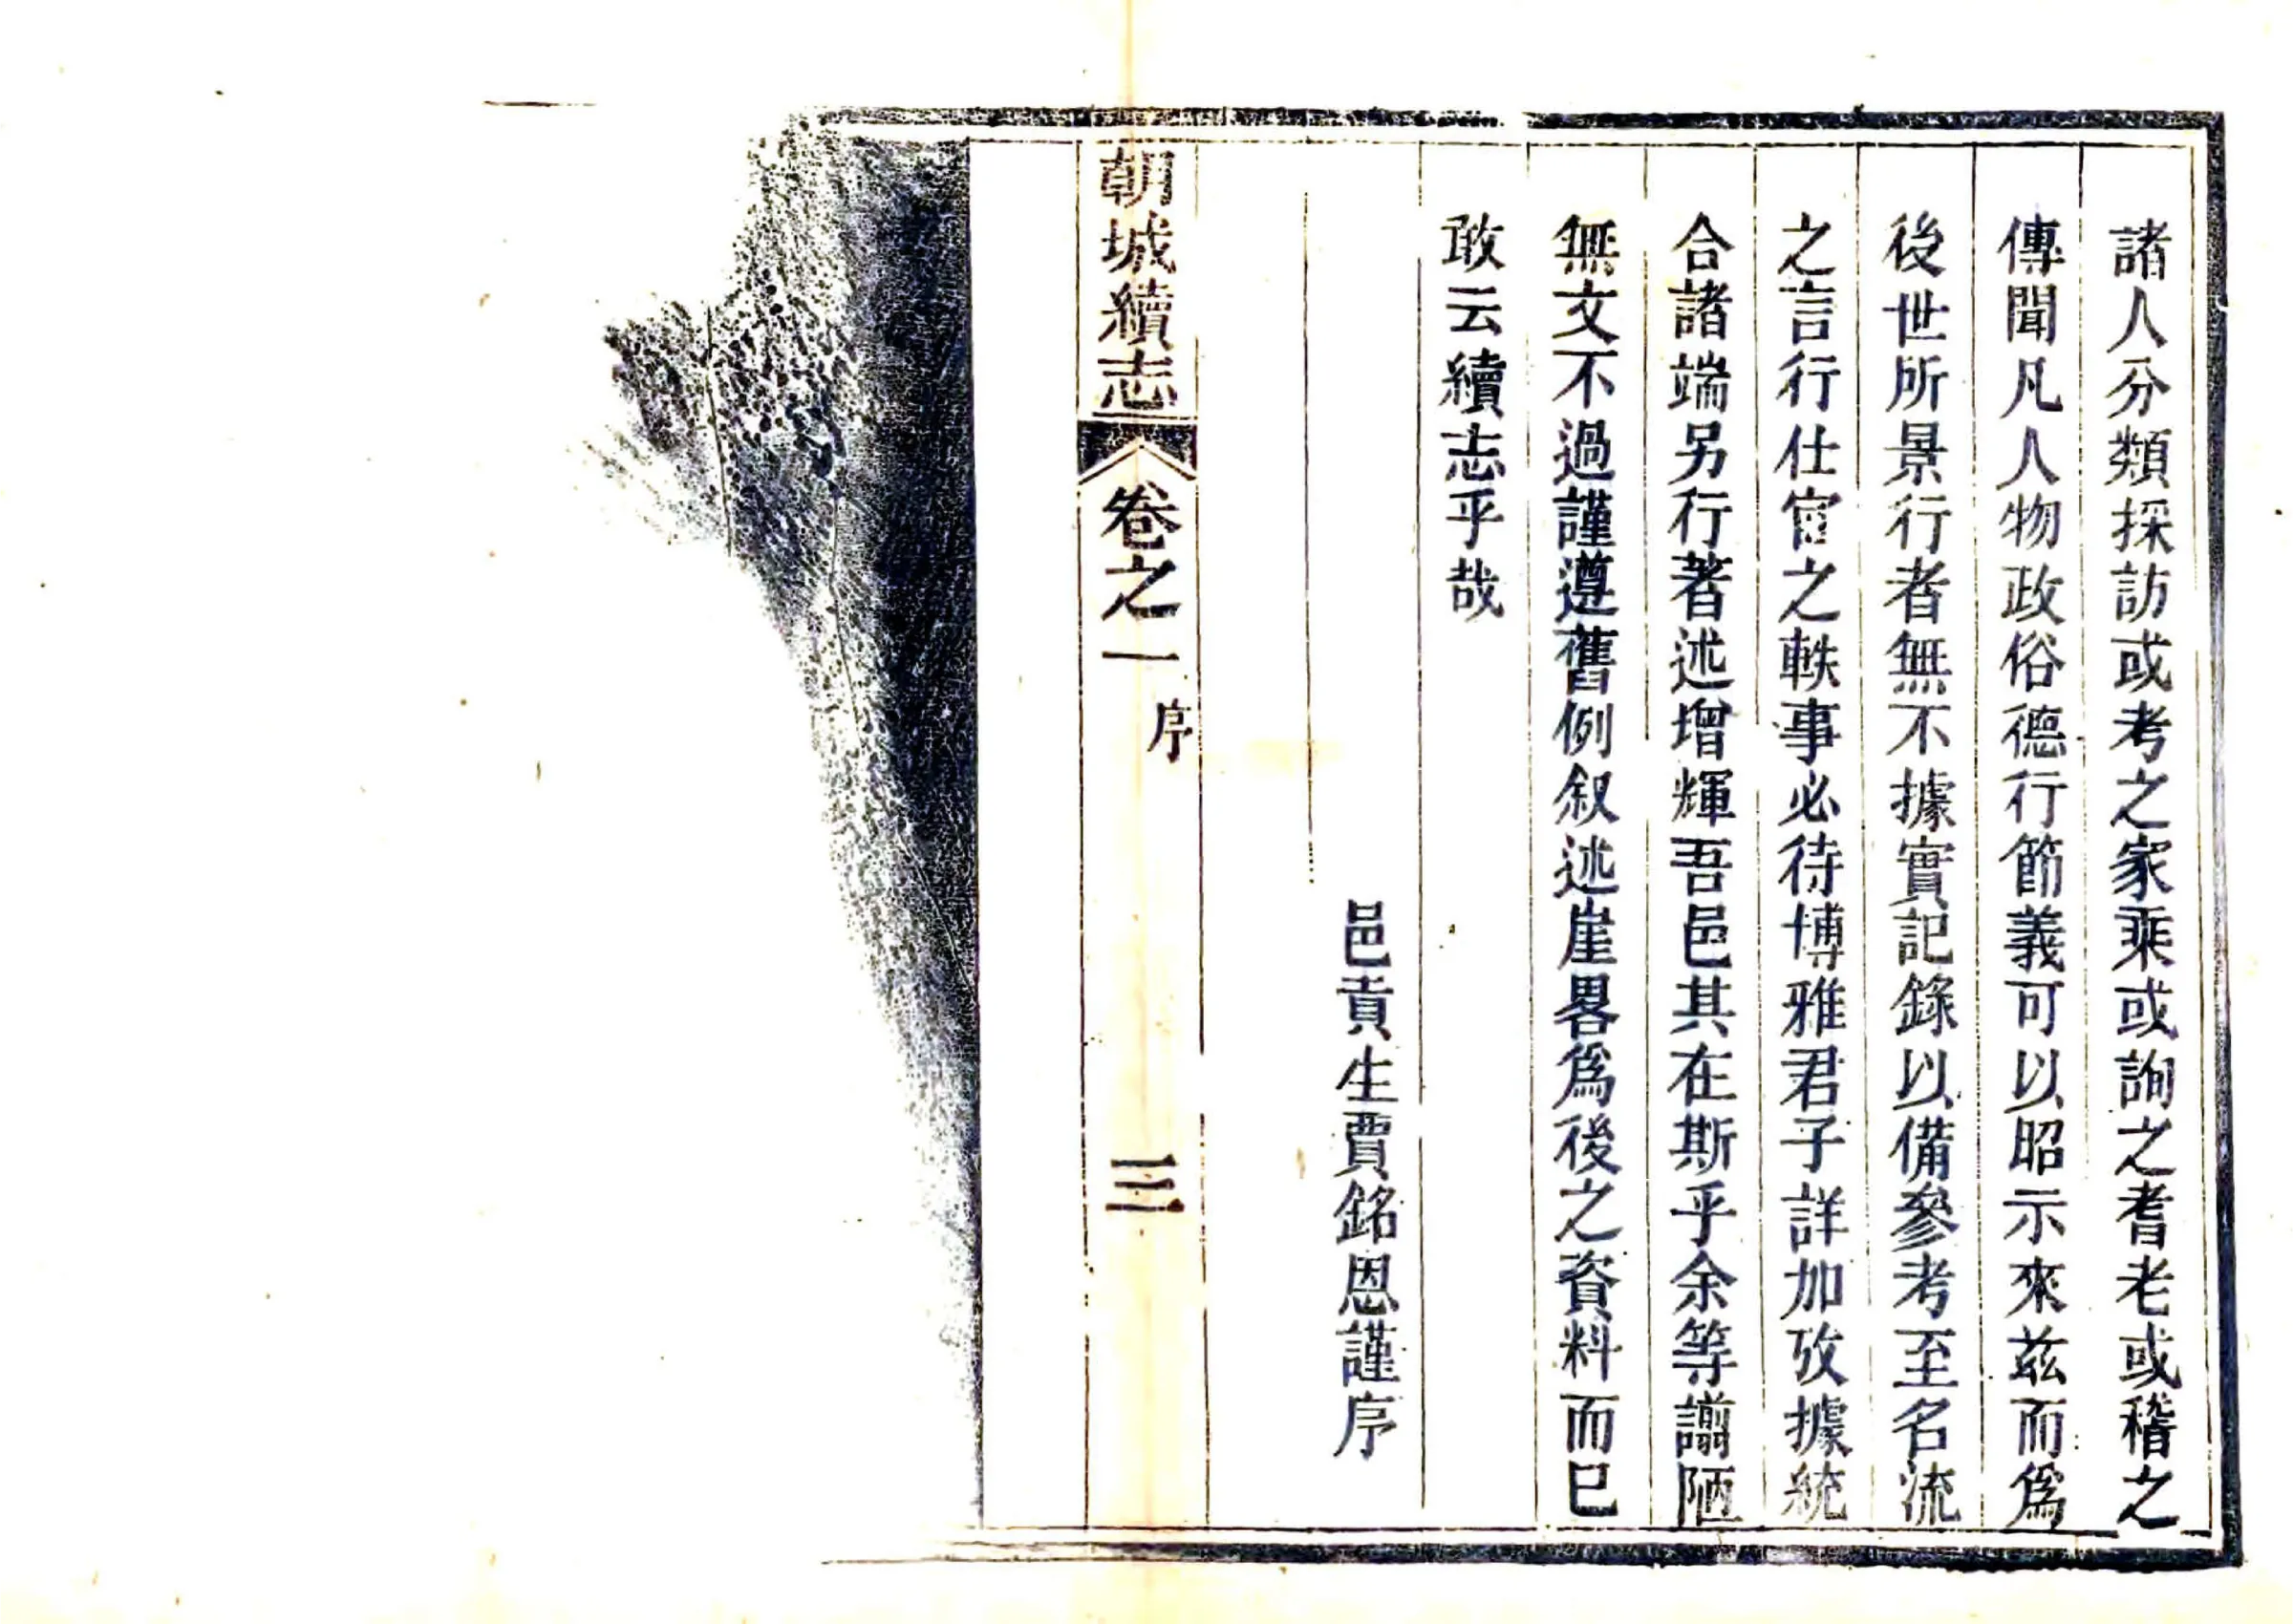 諸人分類採訪或考之家乘或詢之耆老或稽之
傳聞凡人物政俗德行節義可以昭示來玆而爲
後世所景行者無不據實記錄以備參考至名流
之言行仕宦之軼事必待博雅君子詳加攷據統
合諸端另行著述增輝吾邑其在斯乎余等謭陋
無文不過謹遵舊例叙述崖畧爲後之資料而已
敢云續志乎哉
邑貢生賈銘恩謹序
朝城續志
卷之一
序
三